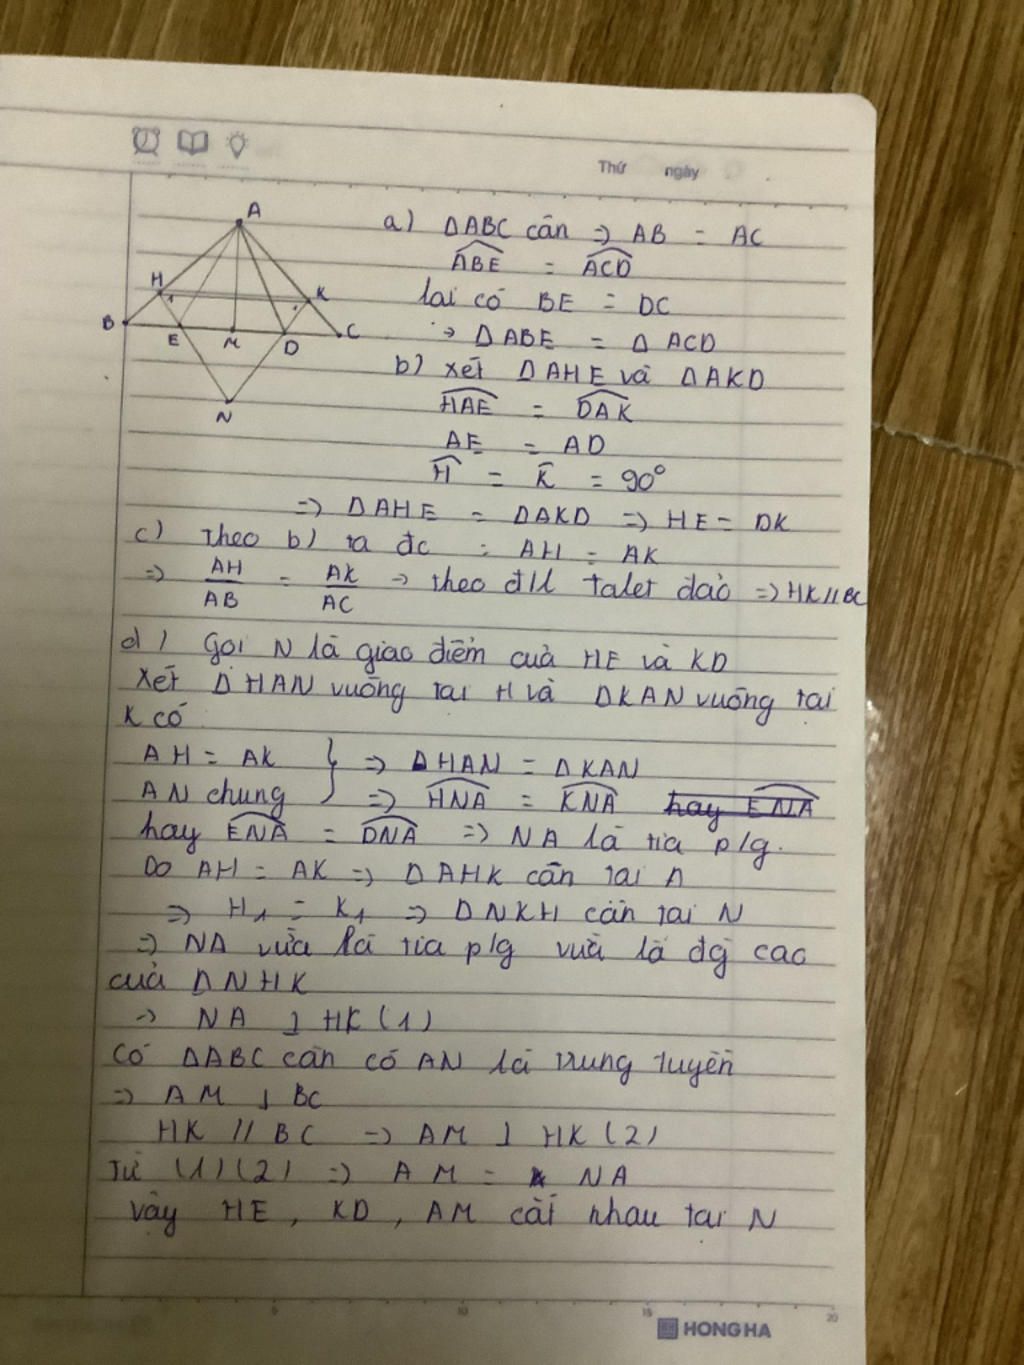 Thứ ngày
A
H
K
B
E
M
D
C
N
1
1
a) ΔABC cân => AB = AC
ABE = ACD
lại có BE = DC
-> ΔABE = ΔACD
b) xét ΔAHE và ΔAKD
HAE = DAK
AE = AD
H = K = 90°
=> ΔAHE = ΔAKD => HE = DK
c) Theo b) ta đc : AH = AK
=> AH/AB = AK/AC -> theo đ/l talet đảo => HK // BC
d) Gọi N là giao điểm của HE và KD
Xét ΔHAN vuông tại H và ΔKAN vuông tại
K có
AH = AK } => ΔHAN = ΔKAN
AN chung => HNA = KNA hay ENA
hay ENA = DNA => NA là tia p/g.
Do AH = AK => ΔAHK cân tại A
=> H1 = K1 => ΔNKH cân tại N
=> NA vừa là tia p/g vừa là đg cao
của ΔNHK
-> NA ⊥ HK (1)
Có ΔABC cân có AN là trung tuyến
=> AM ⊥ BC
HK // BC => AM ⊥ HK (2)
Từ (1)(2) => AM = NA
vậy HE, KD, AM cắt nhau tại N
5 10 15 20
HONG HA